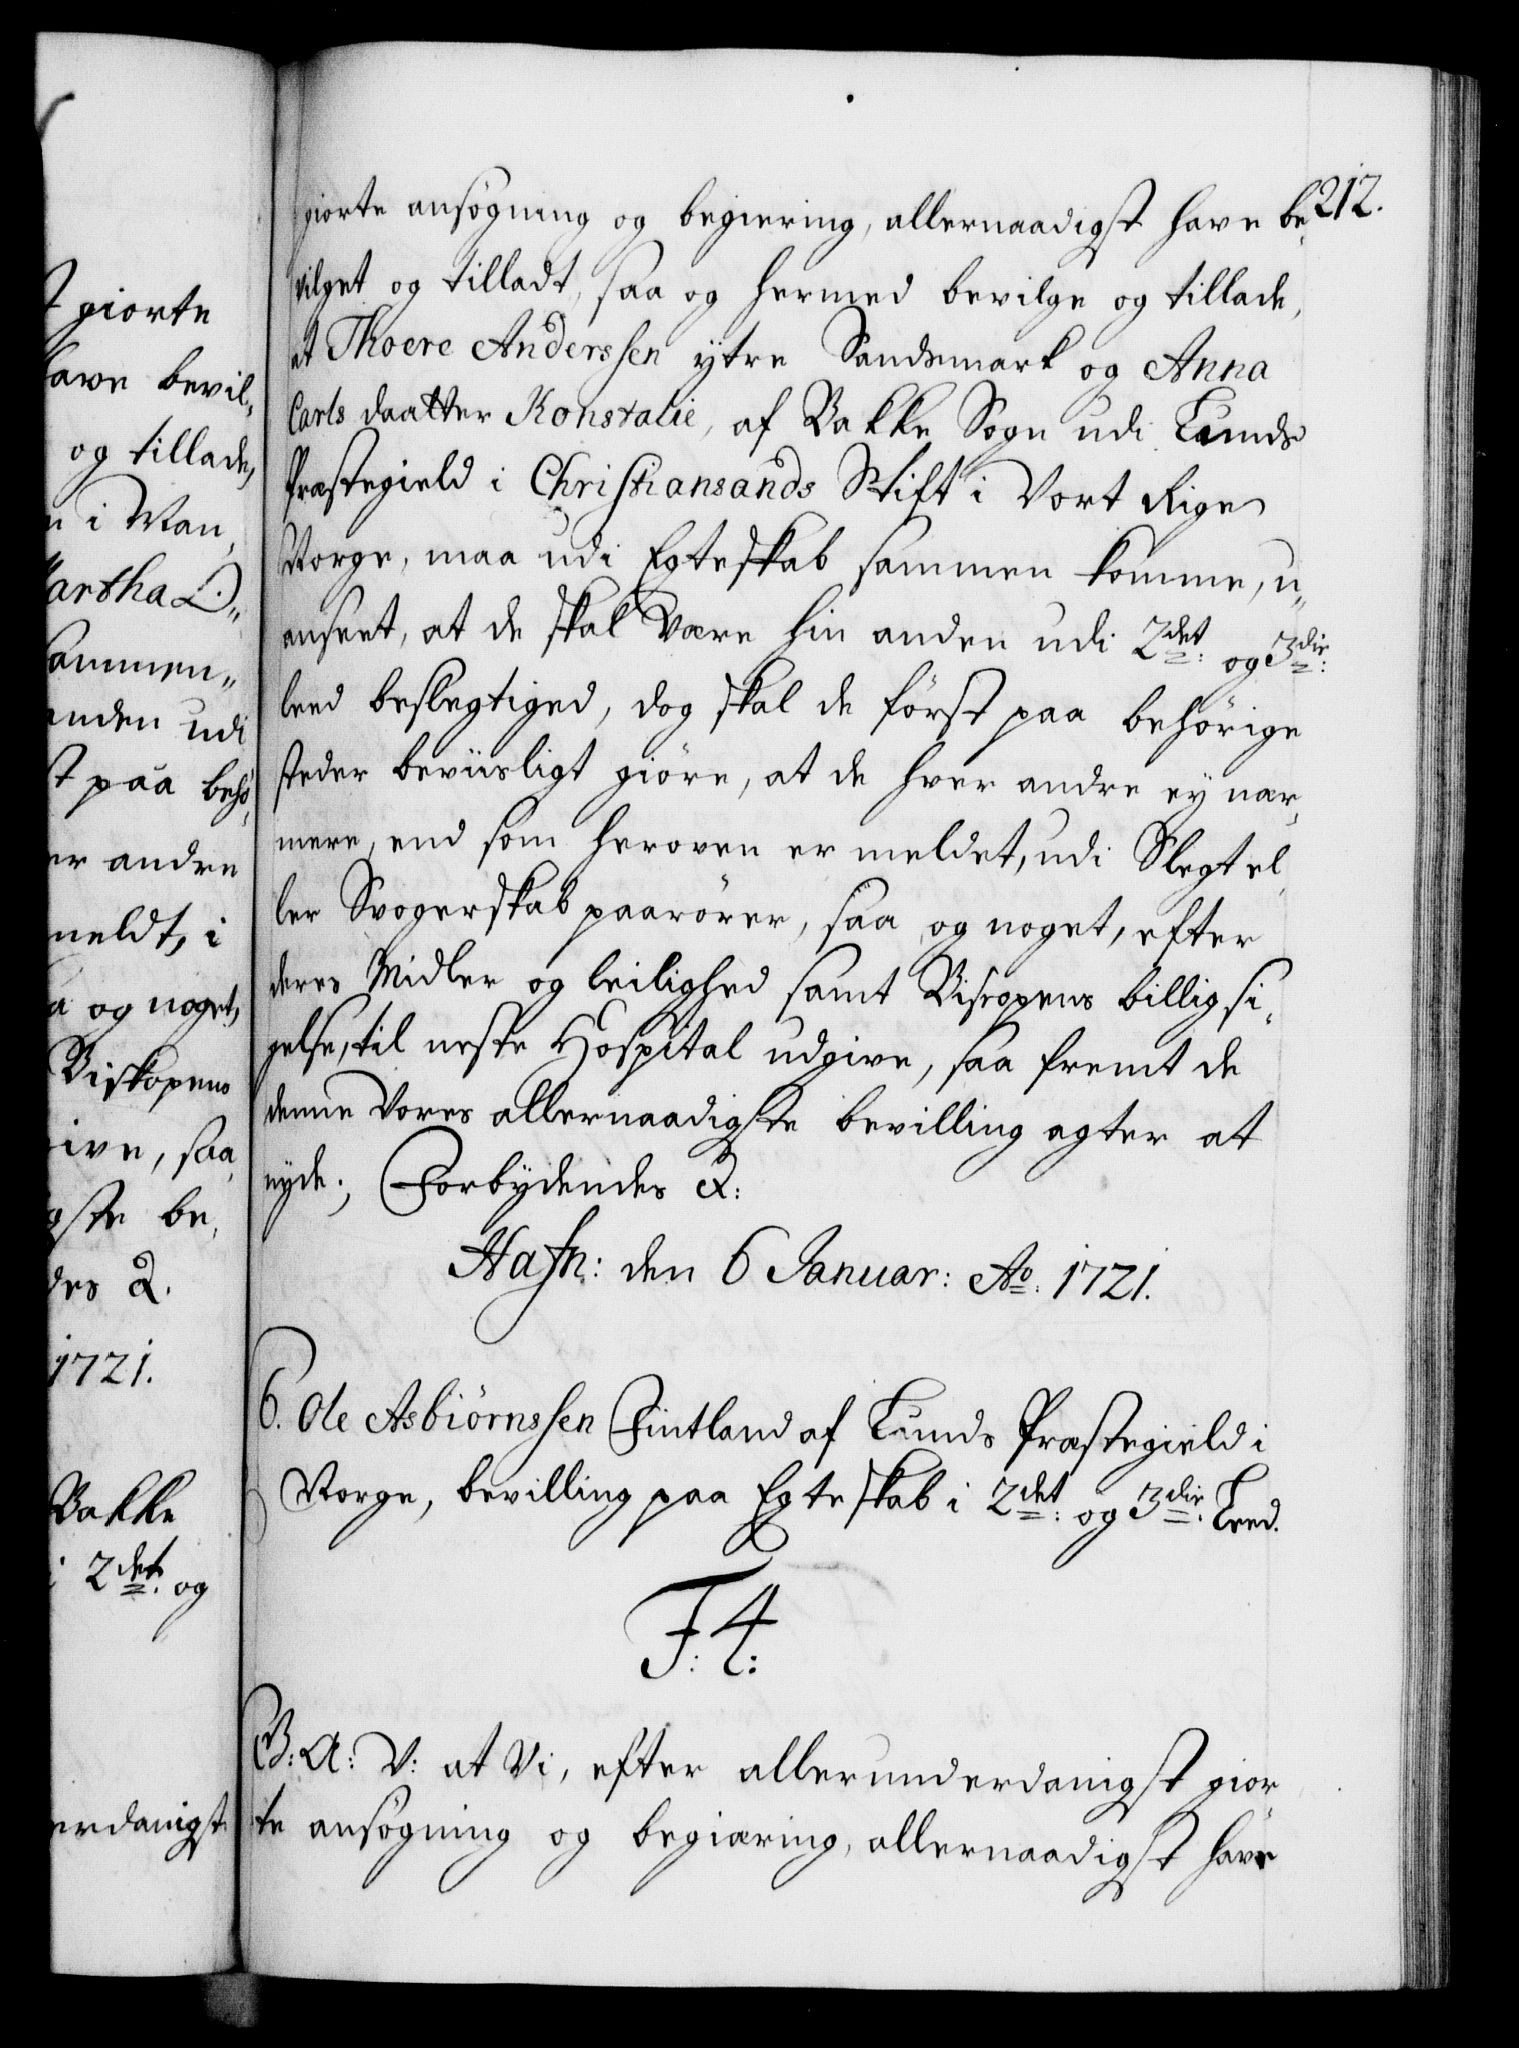 212.
giorte ansögning og begiering, allernaadigst have be,
vilget og tilladt, saa og hermed bevilge og tillade,
at Thoere Anderssen ÿtre Sandsmark og Anna
Carls daatter Konstalie, af Bakke Sogn udi Lunds
Præstegield i Christiansands Stift i Vort Rige
Norge, maa udi Egteskab sammen komme, u„
anseet, at de skal være hin anden udi 2det: og 3die:
leed beslegtiged, dog skal de först paa behörige
steder beviisligt giöre, at de hver andre ey nær,
mere, end som heroven er meldet, udi Slegt el,
ler Svogerskab paarörer, saa og noget, efter
deres Midler og leilighed samt Biscopens billig si,
gelse, til neste Hospital udgive, saa fremt de
denne Vores allernaadigste bevilling agter at
nyde; Forbydendes &:
Hafn: den 6 Januar: Ao: 1721.
6. Ole Asbiörnssen Fintland af Lunds Præstegield i
Norge, bevilling paa Egteskab i 2det: og 3die: Leed.
F: 4:
G: A: V: at Vi, efter allerunderdanigst gior
te ansögning og begiæring, allernaadigst have
t giorte
have bevil„
og tillade,
n i Man,
artha L„
sammen„
anden udi
st paa behö,
er andre
meldt, i
a og noget,
Biskopens
give, saa
gste be,
des &.
1721.
Bakke
i 2det: og
erdanigst